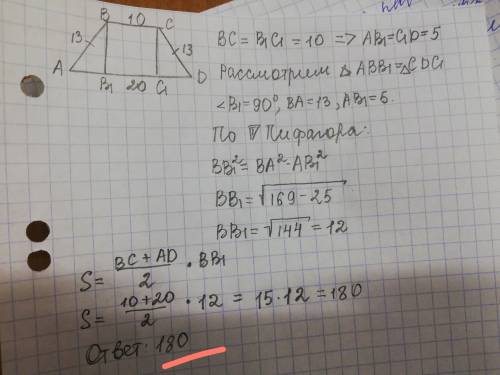 B 10 C
13 13
A B₁ 20 C₁ D
BC = B₁C₁ = 10 => AB₁=C₁D=5
Рассмотрим △ABB₁=△CDC₁
∠B₁=90°, BA=13, AB₁=5.
По T Пифагора:
BB₁²=BA²-AB₁²
BB₁=√169-25
BB₁=√144=12
S= BC+AD/2 • BB₁
S= 10+20/2 • 12 = 15·12=180
Ответ: 180